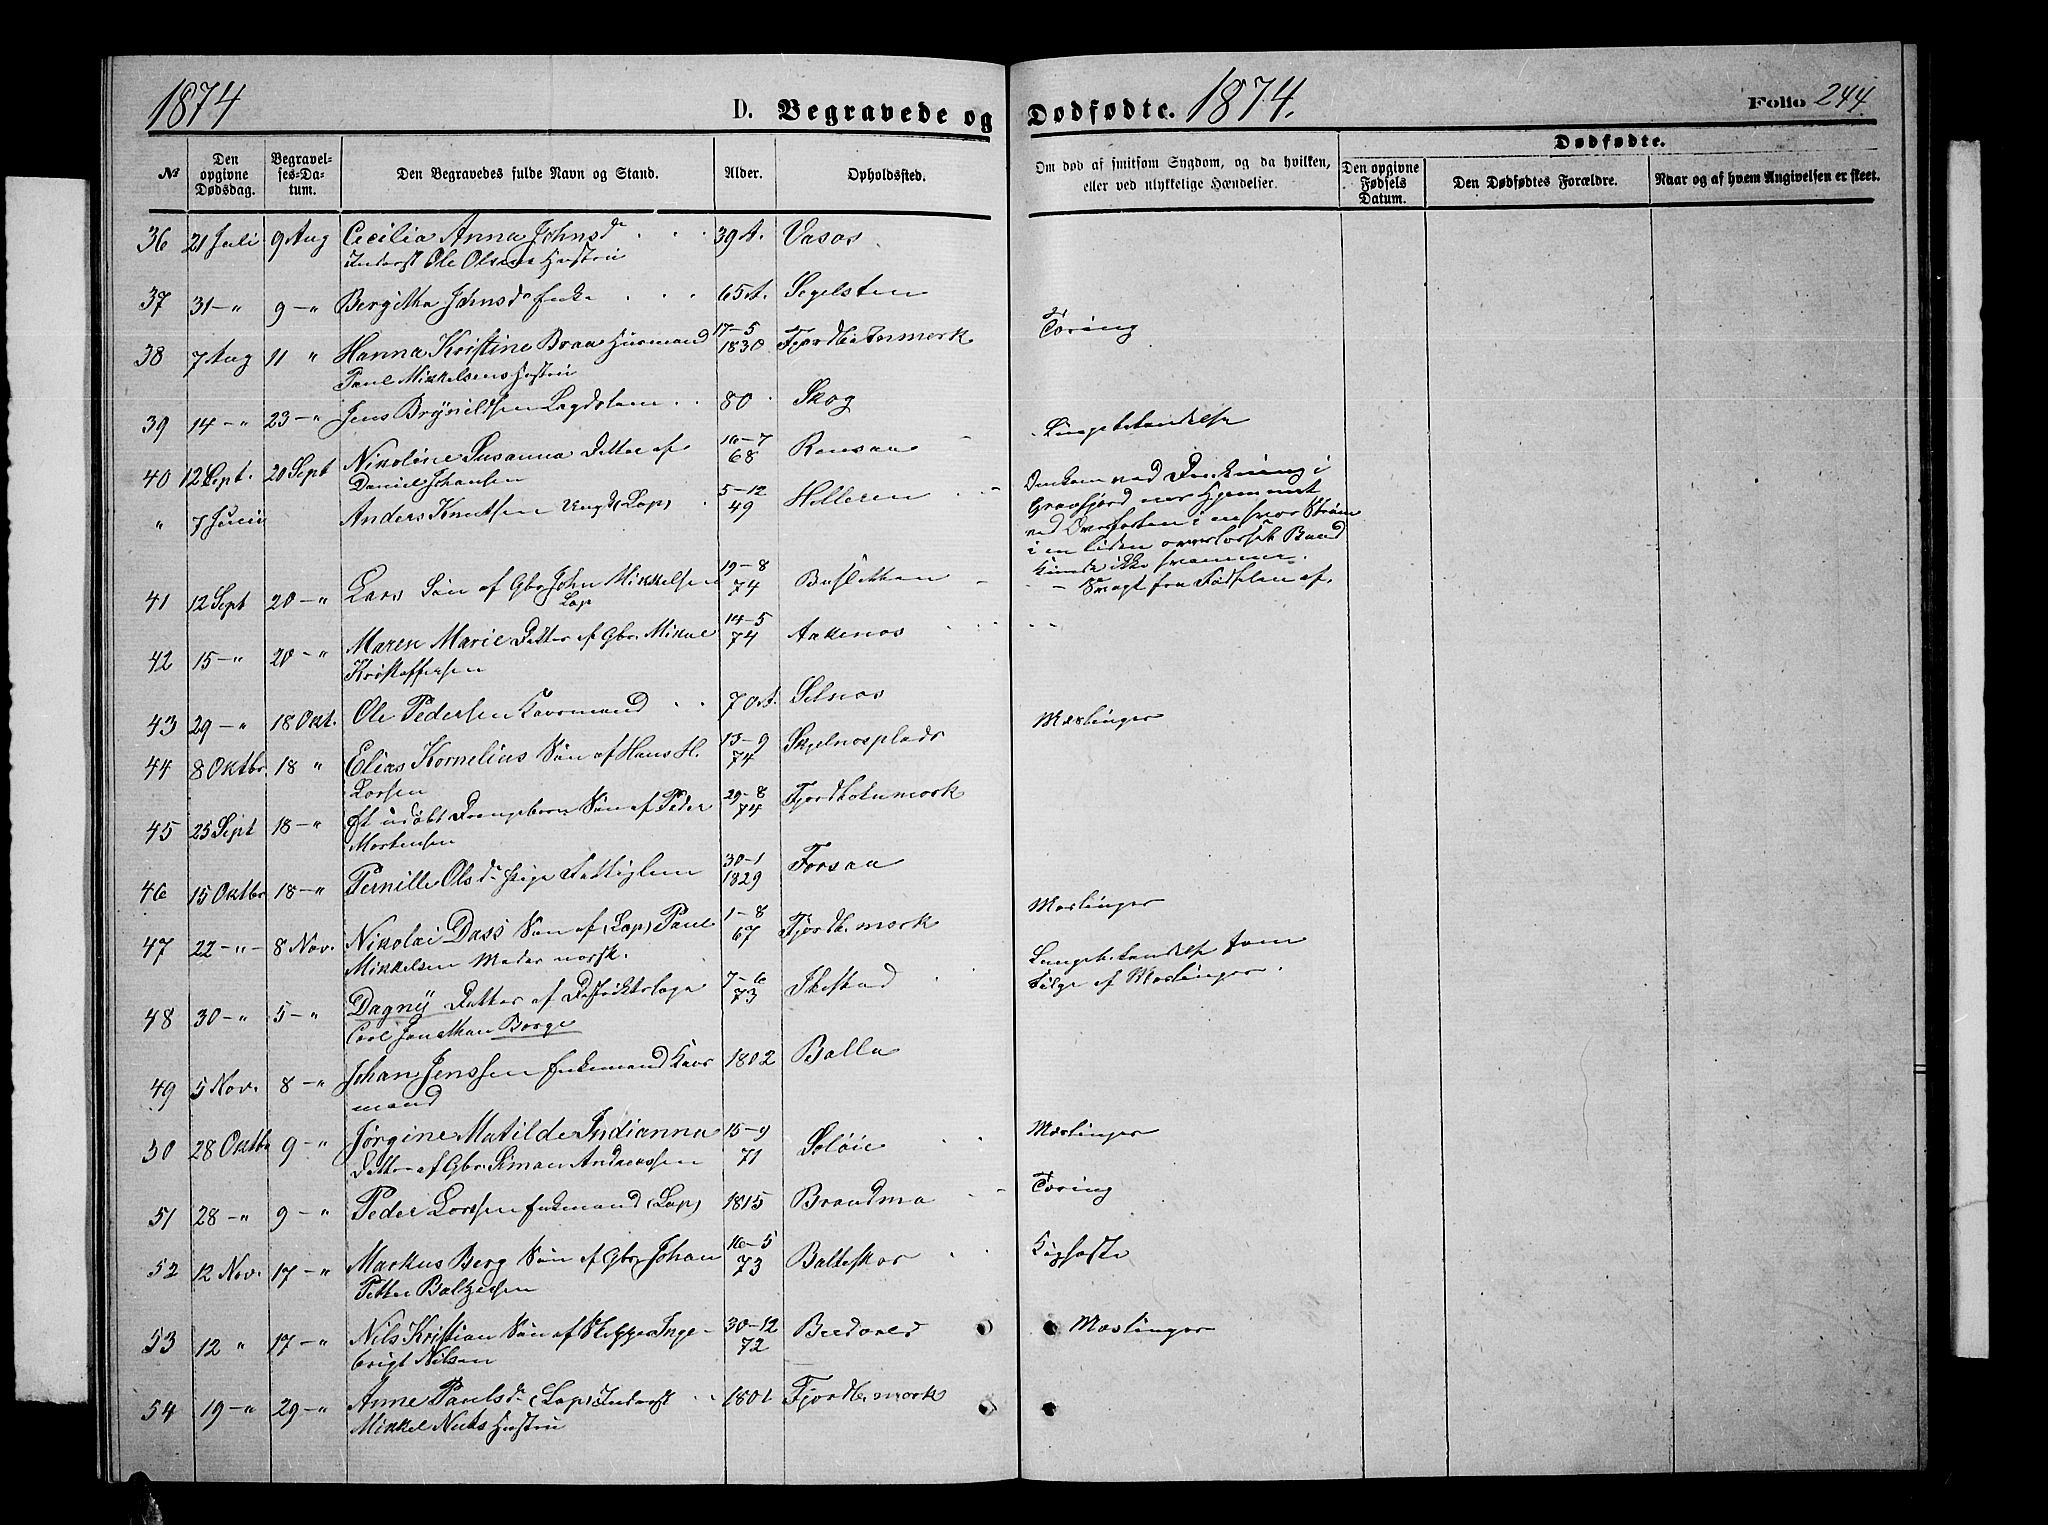 1874
D. Begravede og Dødfødte. 1874. Folio 244.
№ Den opgivne Dødsdag. Begravelses-Datum. Den Begravedes fulde Navn og Stand. Alder. Opholdssted. Om død af smitsom Sygdom, og da hvilken, eller ved ulykkelige Hændelser. Dødfødte.
Den opgivne Fødsels Datum. Den Dødfødtes Forældre. Naar og af hvem Angivelsen er skeet.
36 21 Juli 9 Aug Cecilia Anna Johnsdr 39 A. Vasos
Inderst Ole Olsens Hustru
37 31 -„ 9 -„ Bergitha Johnsdr Enke 65 A. Segelsten
38 7 Aug 11 „ Hanna Kristine Braa Huusmand 17-5 1830 Tæring
Paul Mikkelsens Hustru
39 14 -„ 23 -„ Jens Brynildsen Lagdslem 80 Skog
40 12 Sept. 20 Sept Nikoline Susanna Datter af 16-7 68 Rensaa Lungebetændelse
Daniel Johansen
„ 7 Juni Anders Knutsen Ungk (Lap) 5-12 49 Hilleren
Omkom ved Drukning i
i en liden
kunde ikke svømme.
41 12 Sept 20 -„ Lars Søn af Gbr. John Mikkelsen 19-8 74 - Svagt fra Fødselen af.
Lap
42 15 -„ 20 -„ Maren Marie Datter af Gbr. Mikal 14-5 74 Aakenes
Kristoffersen
43 29 -„ 18 Okt. Ole Pedersen Kaarmand 70 A. Selnes
44 8 Oktbr. 18 „ Elias Kornelius Søn af Hans H. 13-9 74 Skjelnesplads Mæslinger
Larsen
45 25 Sept 18 -„ Et udøbt Drengebarn Søn af Peder 29-8 74 Fjordbotnmark
Mortensen
46 15 Oktbr 18 -„ Pernille Olsdr Pige Fattiglem 30-1 1829 Forsaa
47 22 -„- 8 Nov. Nikolai Dass Søn af (Lap) Paul 1-8 67 Fjordb. mark Mæslinger
Mikkelsen Moder norsk.
48 30 -„ 5 -„ Dagny Datter af Distriktslæge 7-6 73 Ibestad Lungebetændelse som
Carl Jonathan Borge Følge af Mæslinger.
49 5 Nov. 8 -„ Johan Jenssen Enkemand Kaar 1802 Balla
mand
50 28 Oktbr 9 -„ Jørgine Matilde Indianna 15-9 71 Soløie Mæslinger
Datter af Gbr. Simon Andreassen
51 28 -„ 9 -„ Peder Larssen Enkemand (Lap) 1815 Tæring
52 12 Nov. 17 -„ Markus Berg Søn af Gbr. Johan 16-5 73 Balteskar Kighoste
Petter Baltzersen
53 12 „ 17 -„ Nils Kristian Søn af Skipper Inge- 30-12 72 Mæslinger
brigt Nilsen
54 19 -„ 29 -„ Anne Paulsdr (Lap) Inderst 1801 Fjordb. mark
Mikkel Nuts Hustru